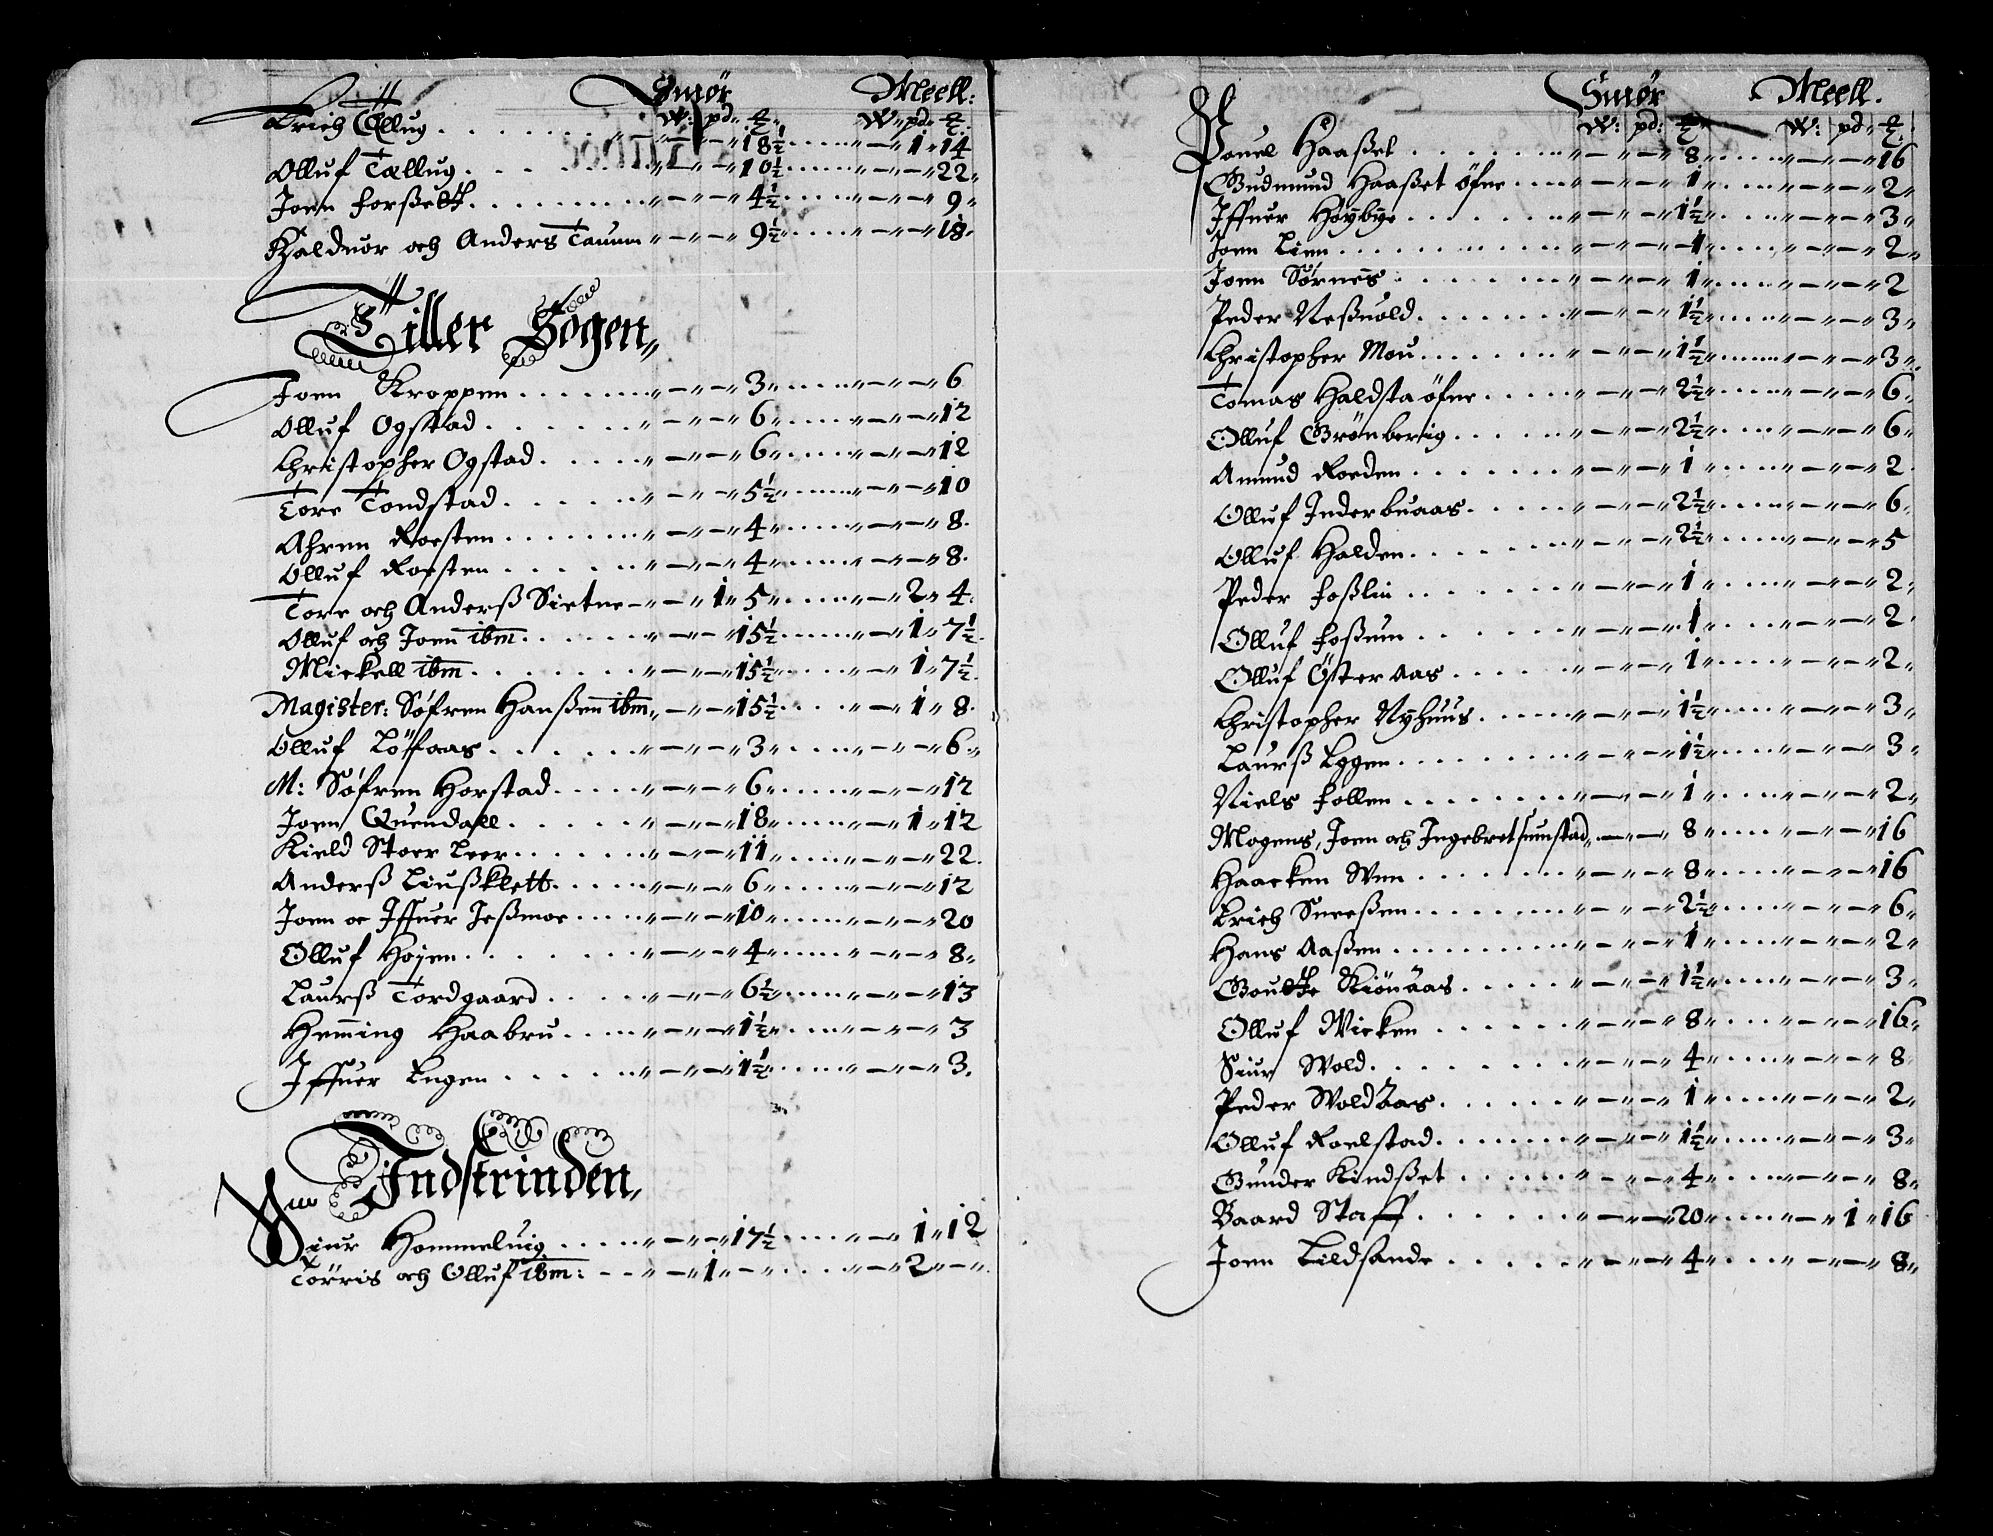 Smør Meell:
W: pd: ℔ W: pd: ℔
Erich Tællug . . . . . . 18½ . . . . 1 14
Olluf Tællug . . . . . . 10½ . . . . 22
Joen Forßett . . . . . . 4½ . . . . 9
Halduor och Anders Tanum 9½ . . . . 18
Tiller Sogen
Joen Kroppen . . . . . . 3 . . . . 6
Olluf Ogstad . . . . . . 6 . . . . 12
Christopher Ogstad . . . . . 6 . . . . 12
Tore Tondstad . . . . . . 5½ . . . . 10
Ahren Roesten . . . . . . 4 . . . . 8
Olluf Roesten . . . . . . 4 . . . . 8
Tore och Anderß Sietne 1 5 . . . . 2 4
Olluf och Joen ibm . . . . 15½ . . . . 1 7½
Mickell ibm . . . . . . 15½ . . . . 1 7½
Magister: Søfren Hanßen ibm 15½ . . . . 1 8
Olluf Løfaas . . . . . . 3 . . . . 6
M: Søfren Horstad . . . . . 6 . . . . 12
Joen Quendall . . . . . . 18 . . . . 1 12
Kield Stoer Leer . . . . . 11 . . . . 22
Anderß Liußklett . . . . . 6 . . . . 12
Joen oc Iffuer Jeßmoe . . . . 10 . . . . 20
Olluf Højen . . . . . . 4 . . . . 8
Laurß Tordgaard . . . . . 6½ . . . . 13
Hemming Haabru . . . . . 1½ . . . . 3
Iffuer Engen . . . . . . 1½ . . . . 3
Indstrinden
Siur Hommeluig . . . . . 17½ . . . . 1 12
Törris och Olluf ibm: 1 . . . . 2
Smør Meell.
W: pd: ℔ W: pd: ℔
Pouel Haaßet . . . . . . 8 . . . . 16
Gudmund Haaßet öfne . . . . 1 . . . . 2
Iffuer Höÿbye . . . . . . 1½ . . . . 3
Joen Lien . . . . . . 1 . . . . 2
Joen Sørnes . . . . . . 1 . . . . 2
Peder Neßuold . . . . . . 1½ . . . . 3
Christopher Mou . . . . . . 1½ . . . . 3
Tomas Haldsta öfne . . . . . 2½ . . . . 6
Olluf Grönberig . . . . . 2½ . . . . 6
Amund Roeden . . . . . . 1 . . . . 2
Olluf Inderbuaas . . . . . 2½ . . . . 6
Olluf Halden . . . . . . 2½ . . . . 5
Peder Foßlin . . . . . . 1 . . . . 2
Olluf Foßum . . . . . . 1 . . . . 2
Olluf Öster aas . . . . . 1 . . . . 2
Christopher Nÿhuus . . . . . 1½ . . . . 3
Laurß Eggen . . . . . . 1½ . . . . 3
Niels Follen . . . . . . 1 . . . . 2
Mogens, Joen och Ingebret sunstad 8 . . . . 16
Haacken Wen . . . . . . 8 . . . . 16
Erich Sneeßen . . . . . . 2½ . . . . 6
Hans Aaßen . . . . . . 1 . . . . 2
Goutte Kiönaas . . . . . 1½ . . . . 3
Olluf Wicken . . . . . . 8 . . . . 16
Siur Wold . . . . . . 4 . . . . 8
Peder Woldaas . . . . . . 1 . . . . 2
Olluf Roelstad . . . . . . 1½ . . . . 3
Gunder Kindßet . . . . . 4 . . . . 8
Baard Staff . . . . . . 20 . . . . 1 16
Joen Lildsande . . . . . . 4 . . . . 8